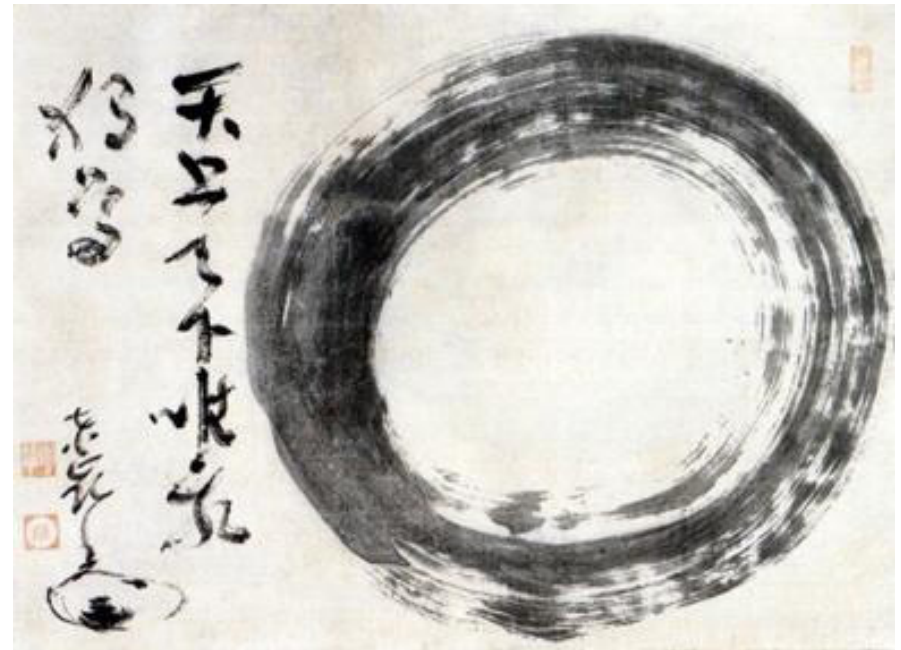 天上天下唯我
獨尊